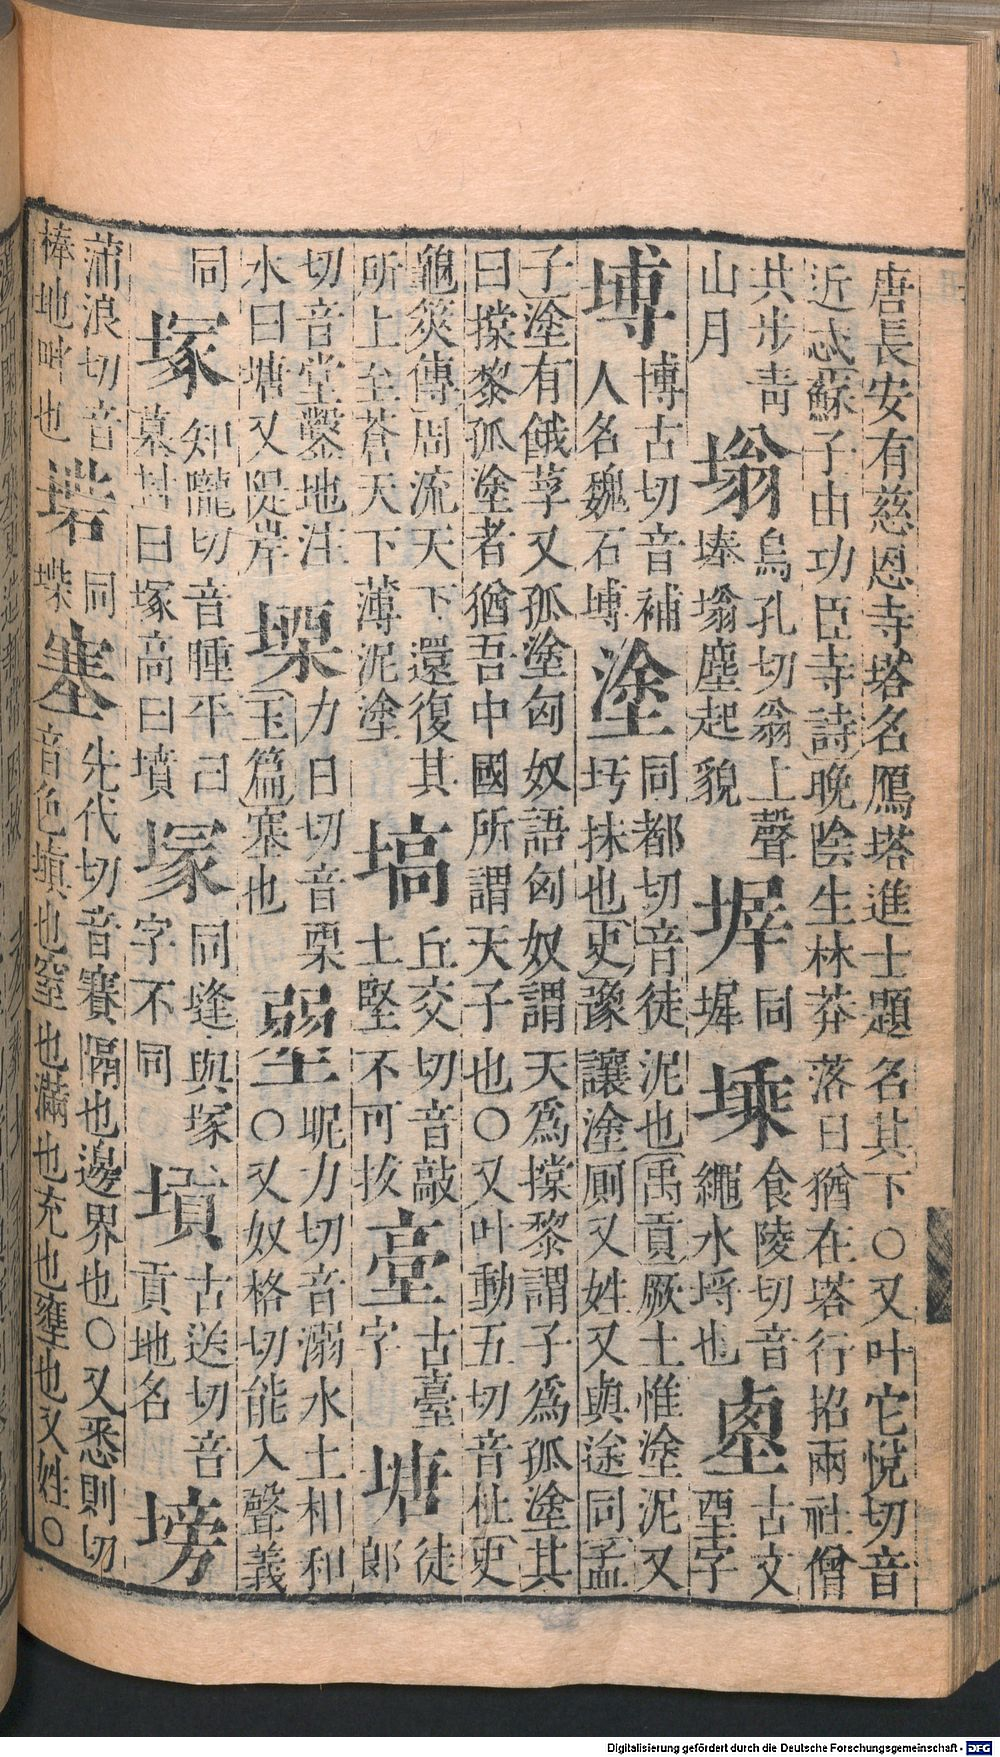 唐長安有慈恩寺塔名鴈塔進士題名其下○又叶它悅切音
近忒蘇子由功臣寺詩晚陰生林莽落日猶在塔行招兩社僧
共步青
山月
塕
烏孔切翁上聲
埲塕塵起貌
同
墀
塖
食陵切音
繩水埓也
古文
堊字
㙛
博古切音補
人名魏石㙛
塗
同都切音徒泥也禹貢厥土惟塗泥又
圬抹也史豫讓塗厠又姓又與途同孟
子塗有餓莩又孤塗匈奴語匈奴謂天爲撑黎謂子爲孤塗其
曰撑黎孤塗者猶吾中國所謂天子也○又叶動五切音杜史
龜筴傳周流天下還復其
所上至蒼天下薄泥塗
塙
丘交切音敲
土堅不可拔
古臺
字
塘
徒
郎
切音堂鑿地注
水曰塘又隄岸
塛
力日切音栗
玉篇塞也
昵力切音溺水土相和
○又奴格切能入聲義
同
塚
知隴切音腫平曰
墓封曰塚高曰墳
塜
同縫與塚
字不同
古送切音
貢地名
塝
蒲浪切音
棒地畔也
同
堞
塞
先代切音賽隔也邊界也○又悉則切
音色塡也窒也滿也充也壅也又姓○
Digitalisierung gefördert durch die Deutsche Forschungsgemeinschaft - DFG